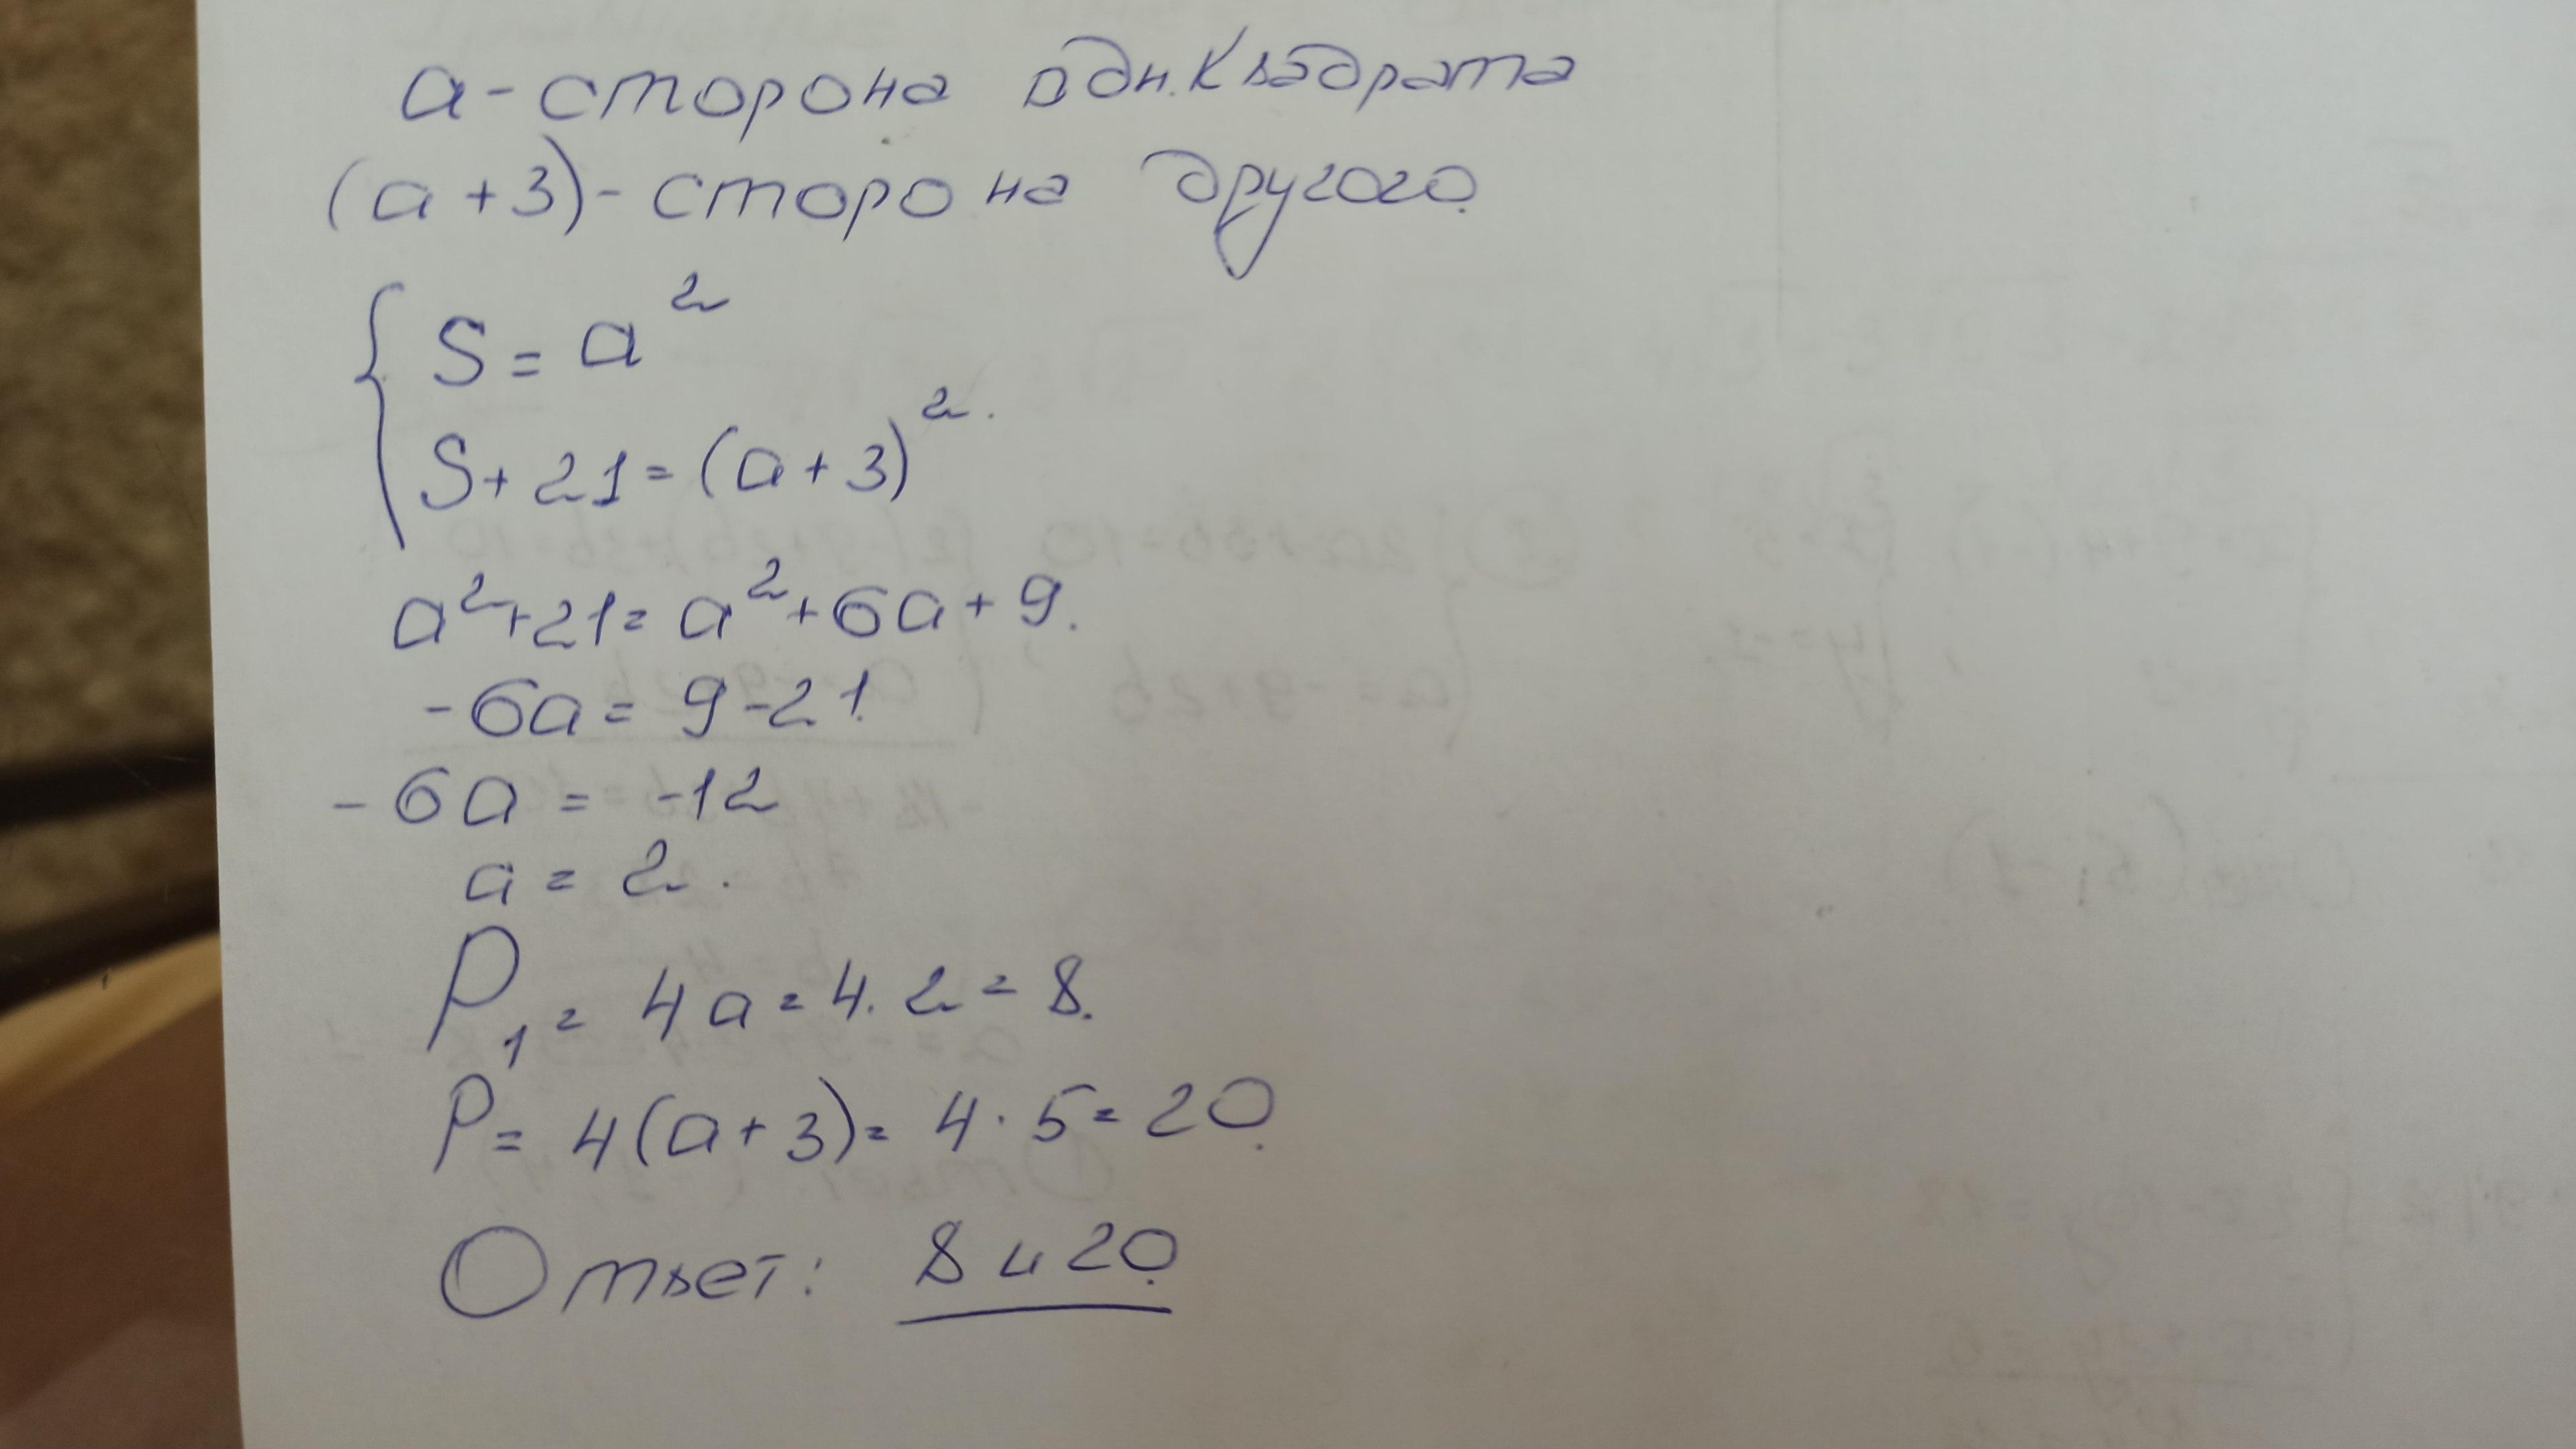 a - сторона одн. квадрата
(a + 3) - сторона другого.
S = a²
S + 21 = (a + 3)².
a² + 21 = a² + 6a + 9.
-6a = 9 - 21.
-6a = -12
a = 2.
P₁ = 4a = 4 · 2 = 8.
P = 4(a + 3) = 4 · 5 = 20.
Ответ: 8 и 20.